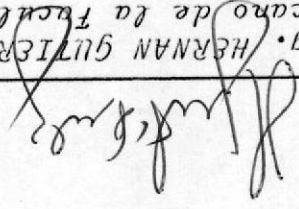 g. HERNAN GUTIER
cano de la Facul